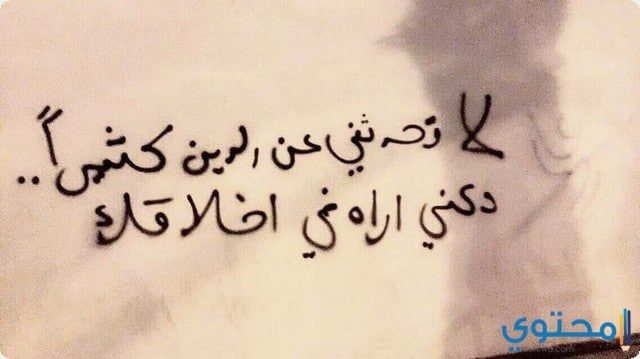 لا تحدثني عن الدين كثيراً ..
دعني اراه في اخلاقك
محتوي